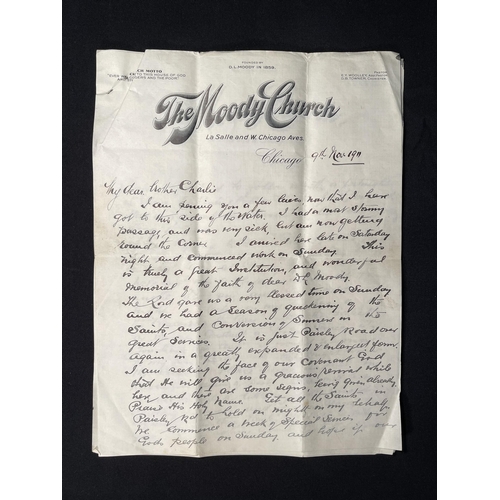 FOUNDED BY
D.L. MOODY IN 1858
The Moody Church
La Salle and W. Chicago Aves.
Chicago, 9th Nov 1911
My dear brother Charlie
I am penning you a few lines now that I have
got to this side of the water. I had a most stormy
passage, and was very sick, but am now getting
round the corner. I arrived here late on Saturday
night and commenced work on Sunday. This
is truly a great Institution, and wonderful
Memorial of the faith of dear D.L. Moody.
The Lord gave us a very blessed time on Sunday
and we had a Season of quickening of the
Saints, and Conversion of Sinners in the
great Services. It is just Paisley Road over
again in a greatly expanded & enlarged form.
I am seeking the face of our Covenant God
that He will give us a gracious revival while
here and there are some signs being given already,
Praise His Holy Name. Let all the Saints in
Paisley Rd to hold on mightily on my behalf.
We commence a Week of Special Services for
Gods people on Sunday and hope if our